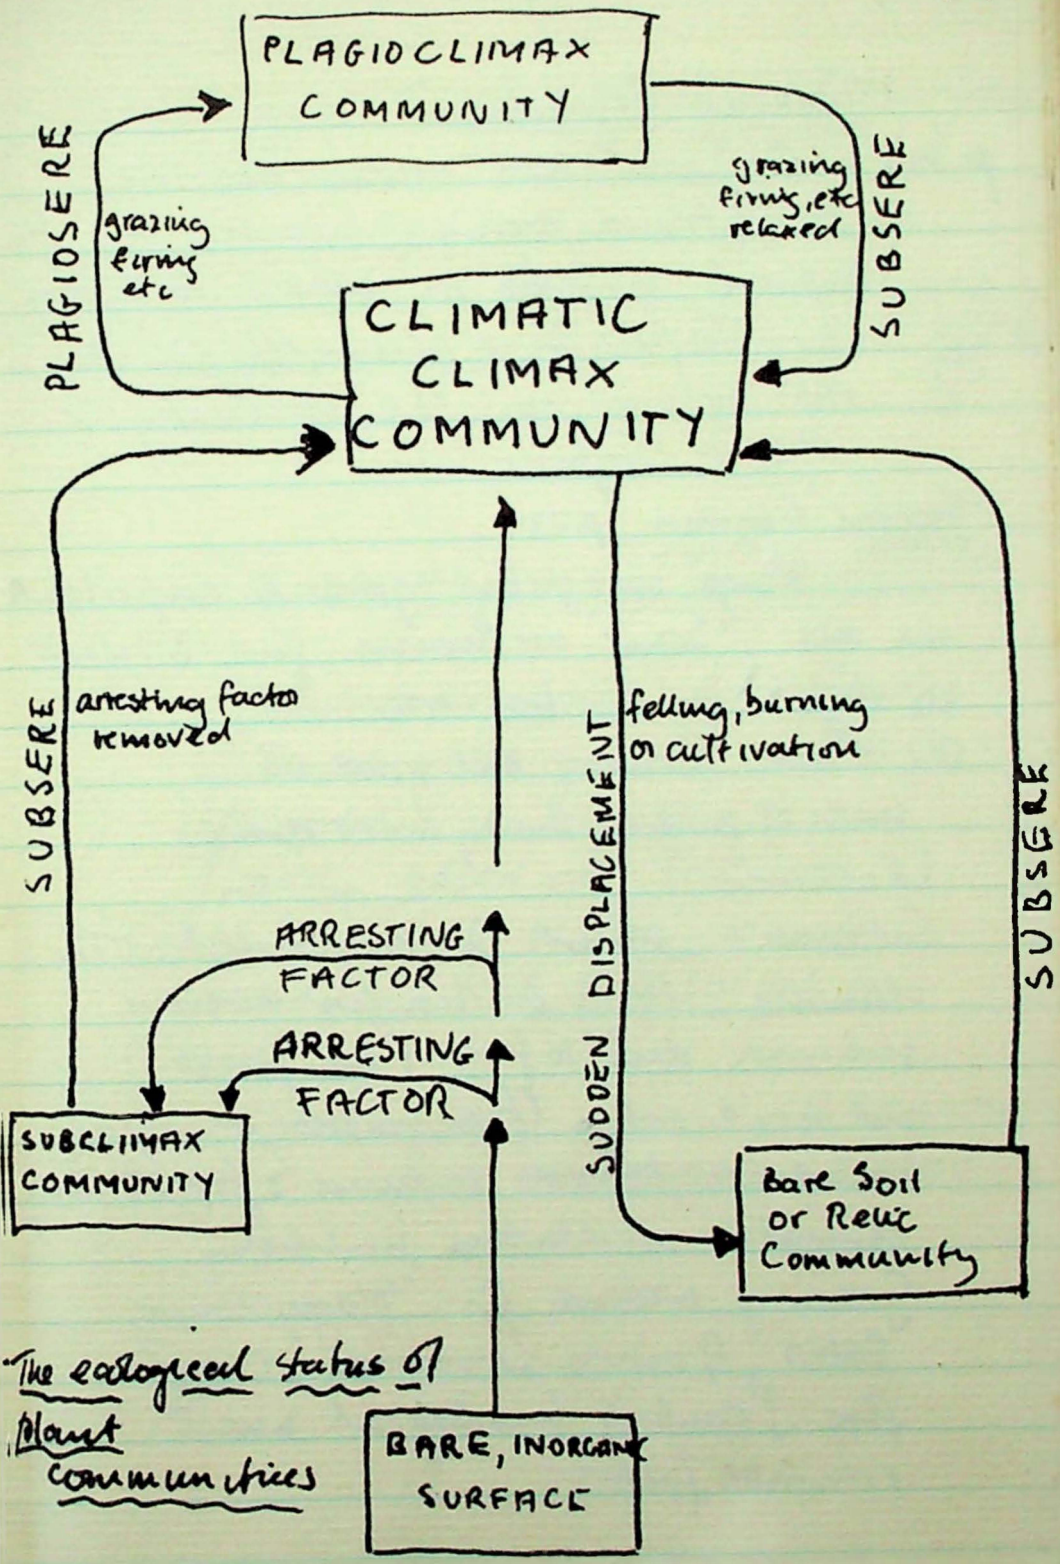 PLAGIOCLIMAX
COMMUNITY
PLAGIOSERE
grazing
firing
etc
grazing
firing, etc
relaxed
SUBSERE
CLIMATIC
CLIMAX
COMMUNITY
SUBSERE
arresting factor
removed
SUDDEN DISPLACEMENT
felling, burning
or cultivation
SUBSERE
ARRESTING
FACTOR
ARRESTING
FACTOR
SUBCLIMAX
COMMUNITY
Bare Soil
or Relic
Community
The ecological status of
plant
communities
BARE, INORGANIC
SURFACE